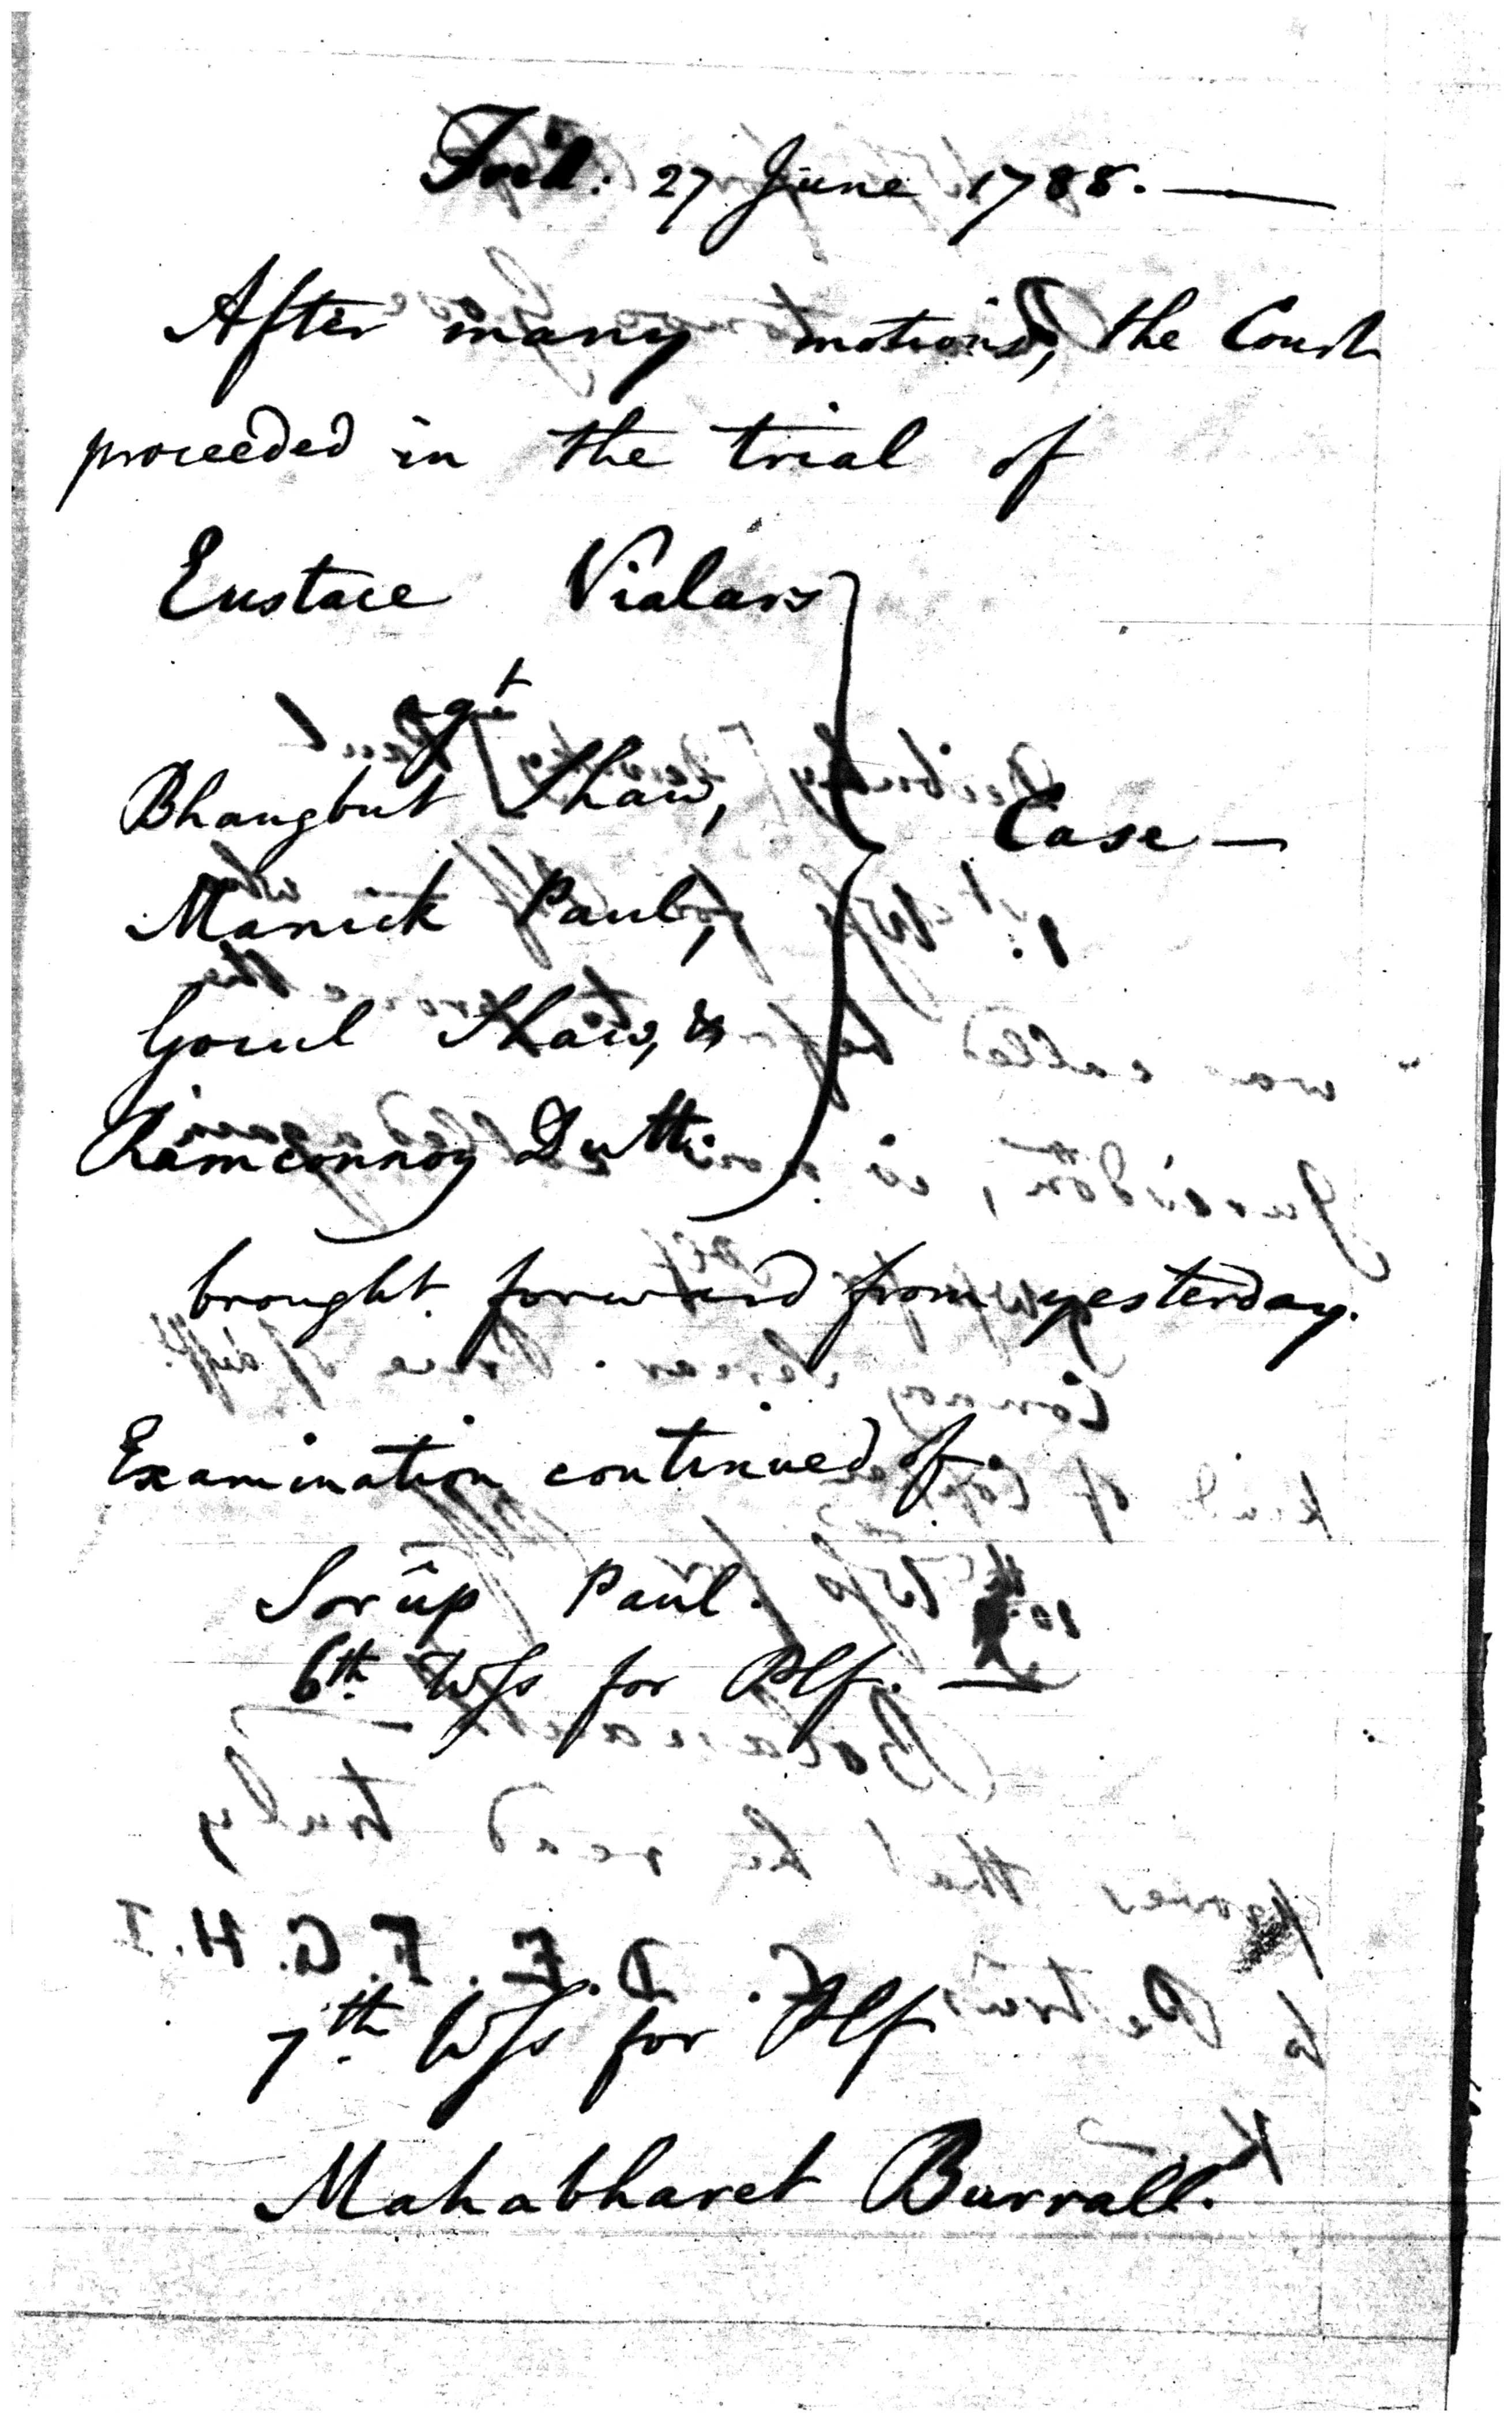 Frid. 27 June 1788. —
After many motions, the Court
proceeded in the trial of
Eustace Vialars
agt
Bhaugbut Shaw,
Case —
Manick Paul,
Gocul Shaw, &
Ramconnoy Dutt
brought forward from yesterday.
Examination continued of
Sorûp Paul.
6th Wss for Plf. —
7th Wss for Plf
Mahabharet Burrall.